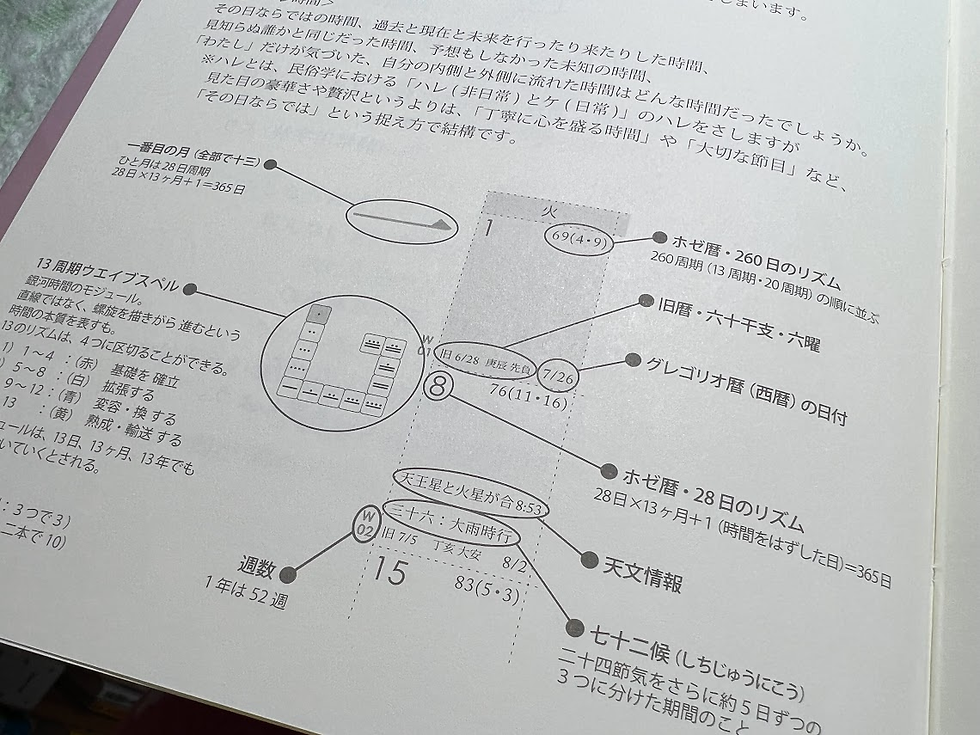 しまいます。
時間＞
その日ならではの時間、過去と現在と未来を行ったり来たりした時間、
見知らぬ誰かと同じだった時間、予想もしなかった未知の時間、
「わたし」だけが気づいた、自分の内側と外側に流れた時間はどんな時間だったでしょうか。
※ハレとは、民俗学における「ハレ(非日常)とケ(日常)」のハレをさしますが
見た目の豪華さや贅沢というよりは、「丁寧に心を盛る時間」や「大切な節目」など、
「その日ならでは」という捉え方で結構です。
一番目の月（全部で十三）
ひと月は28日周期
28日×13ヶ月＋1＝365日
火
1
69(4・9)
ホゼ暦・260日のリズム
260周期（13周期・20周期）の順に並ぶ
13周期ウエイブスペル
銀河時間のモジュール。
直線ではなく、螺旋を描きがら進むという
時間の本質を表すも。
13のリズムは、4つに区切ることができる。
1）1〜4：（赤）基礎を確立
）5〜8：（白）拡張する
9〜12：（青）変容・換する
13：（黄）熟成・輸送する
ュールは、13日、13ヶ月、13年でも
いていくとされる。
：3つで3）
二本で10）
旧暦・六十干支・六曜
W
01
旧 6/28 庚辰 先負
7/26
グレゴリオ暦（西暦）の日付
8
76(11・16)
ホゼ暦・28日のリズム
28日×13ヶ月＋1（時間をはずした日）＝365日
天王星と火星が合 8:53
三十六：大雨時行
W
02
旧 7/5 丁亥 大安 8/2
天文情報
週数
1年は52週
15
83(5・3)
七十二候（しちじゅうにこう）
二十四節気をさらに約5日ずつの
3つに分けた期間のこと